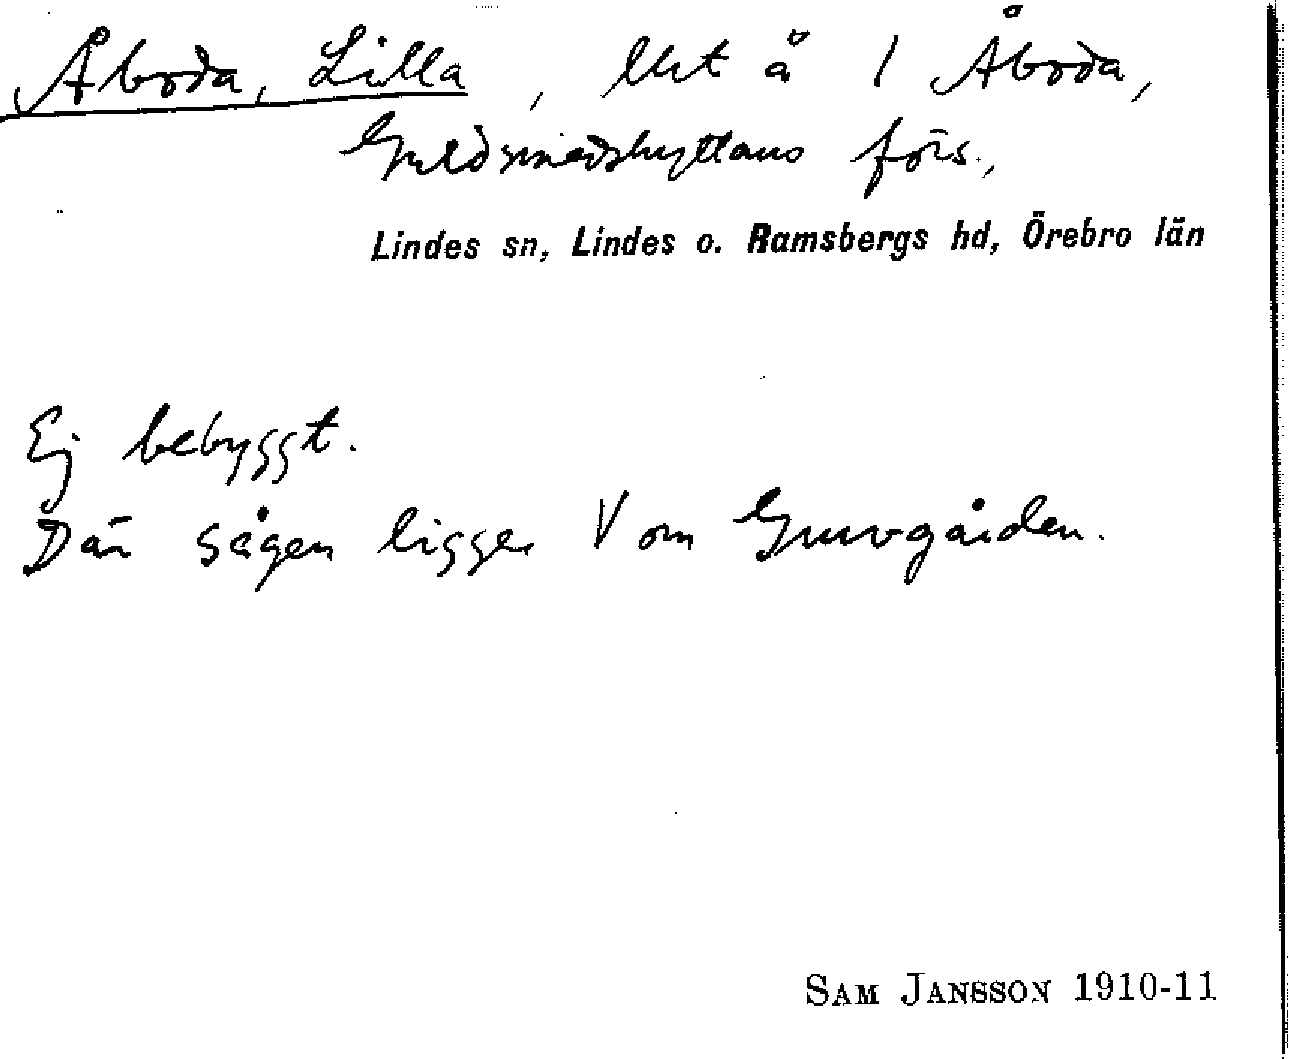 Åboda, Lilla, lht å 1 Åboda,
Guldsmedshyttans förs.,
Lindes sn, Lindes o. Ramsbergs hd, Örebro län
Ej bebyggt.
Där sågen ligger V om Gruvgården.
SAM JANSSON 1910-11